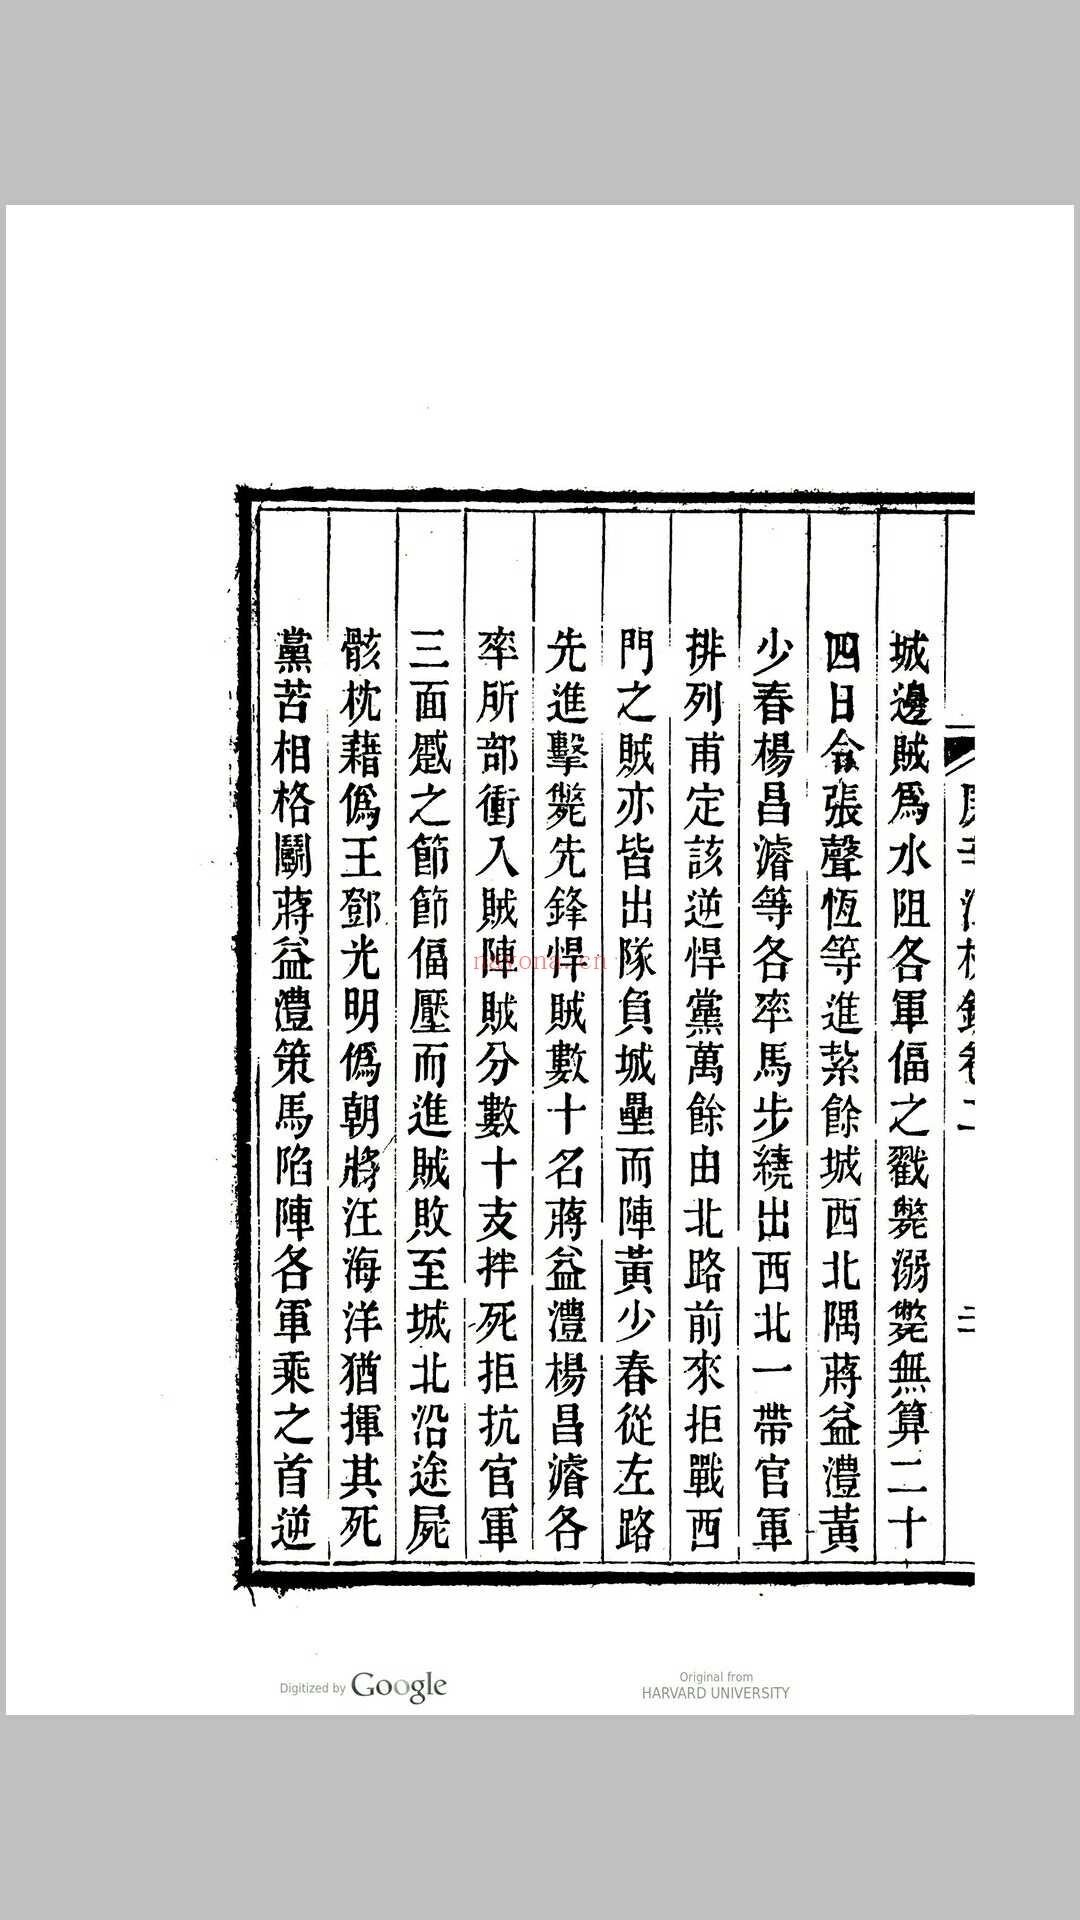 城邊賊爲水阻各軍偪之戳斃溺斃無算二十
四日令張聲恆等進紮餘城西北隅蔣益澧黃
少春楊昌濬等各率馬步繞出西北一帶官軍
排列甫定該逆悍黨萬餘由北路前來拒戰西
門之賊亦皆出隊負城壘而陣黃少春從左路
先進擊斃先鋒悍賊數十名蔣益澧楊昌濬各
率所部衝入賊陣賊分數十支拌死拒抗官軍
三面蹙之節節偪壓而進賊敗至城北沿途屍
骸枕藉僞王鄧光明僞朝將汪海洋猶揮其死
黨苦相格鬭蔣益澧策馬陷陣各軍乘之首逆
nayona.cn
Digitized by Google
Original from
HARVARD UNIVERSITY